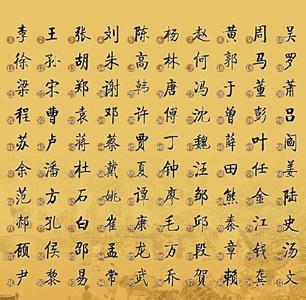 李王张刘陈杨赵黄周吴
徐孙胡朱高林何郭马罗
梁宋郑谢韩唐冯于董萧
程曹袁邓许傅沈曾彭吕
苏卢蒋蔡贾丁魏薛叶阎
余潘杜戴夏钟汪田任姜
范方石姚谭廖邹熊金陆
郝孔白崔康毛邱秦江史
顾侯邵孟龙万段章钱汤
尹黎易常武乔贺赖龚文